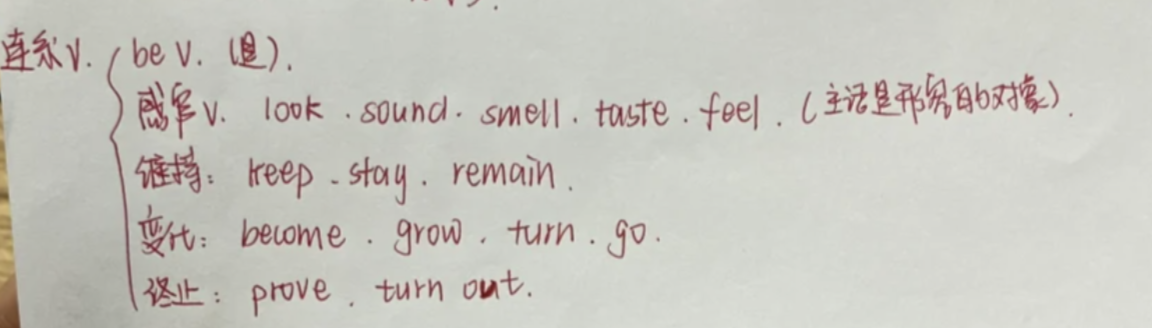 连系v. be v. (是).
感官v. look. sound. smell. taste. feel. (主语是形容的对象).
维持: keep. stay. remain.
变化: become. grow. turn. go.
终止: prove. turn out.